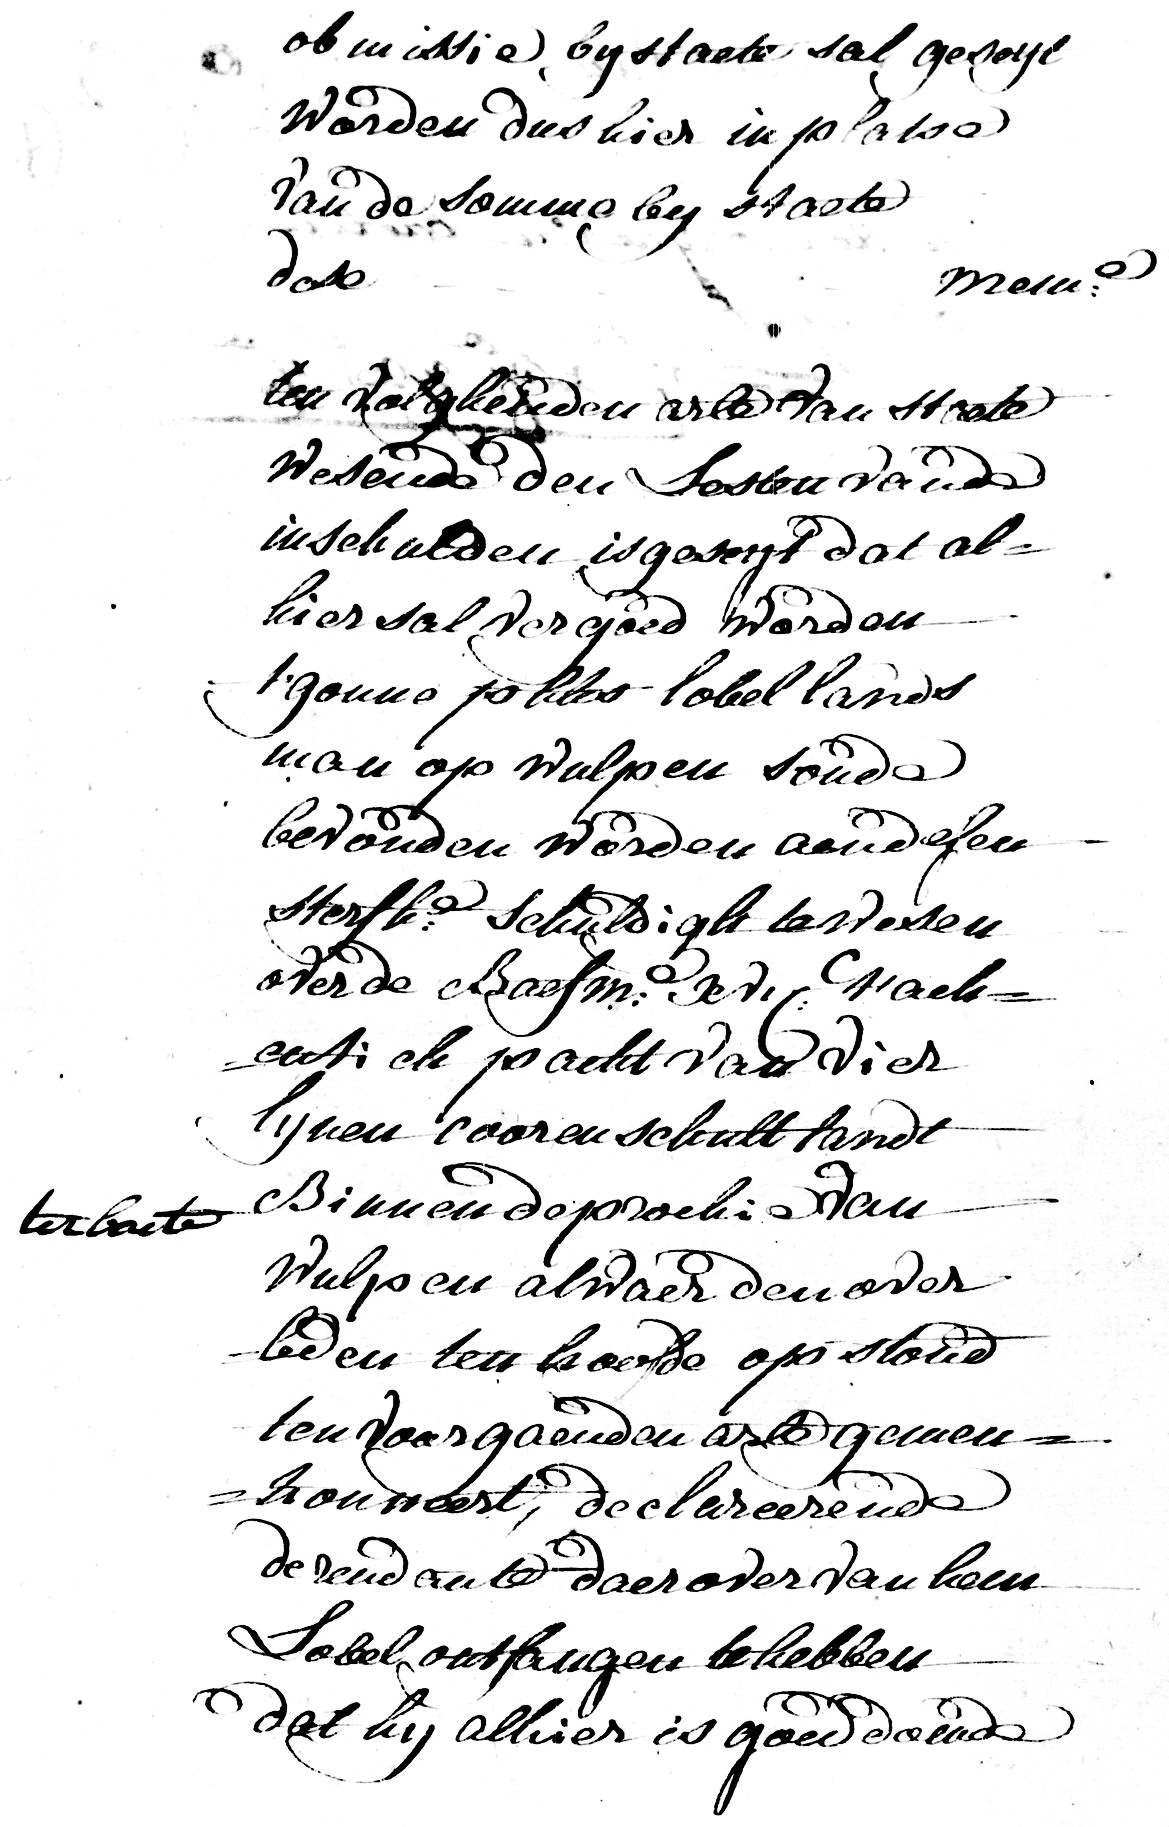 obmissie bij staete sal geseijt
worden dus hier in platse
van de somme bij staete
dese mem:e
ten volghenden arle van staete
wesende den Lesten vande
inschulden is geseijt dat al=
hier sal vergoed worden
t'gonne phles lobel lands
man op wulpen soude
bevonden worden aen desen
sterfh:e schuldigh te wesen
over de Baefm:e xvij.c t'ach=
=entich pacht van vier
lijnen coorenschult landt
Binnen de prochie van
ter baete
wulpen alwaer den over
leden ten hoofde op stond
ten voorgaenden arle gemen=
=tionneert, declareerende
de rendante daer over van hem
Lobel ontfangen te hebben
dat hij alhier is goed doende